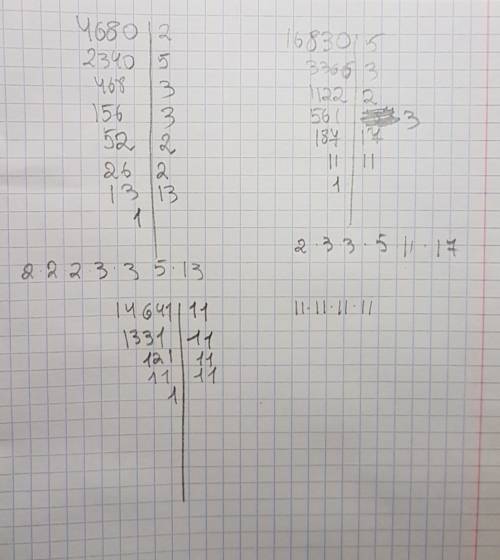 4680 | 2
2340 | 5
468 | 3
156 | 3
52 | 2
26 | 2
13 | 13
1
2·2 2 3·3 5·13
16830 | 5
3366 | 3
1122 | 2
561 | 3
187 | 17
11 | 11
1
2·3 3·5 11·17
14641 | 11
1331 | 11
121 | 11
11 | 11
1
11·11·11·11